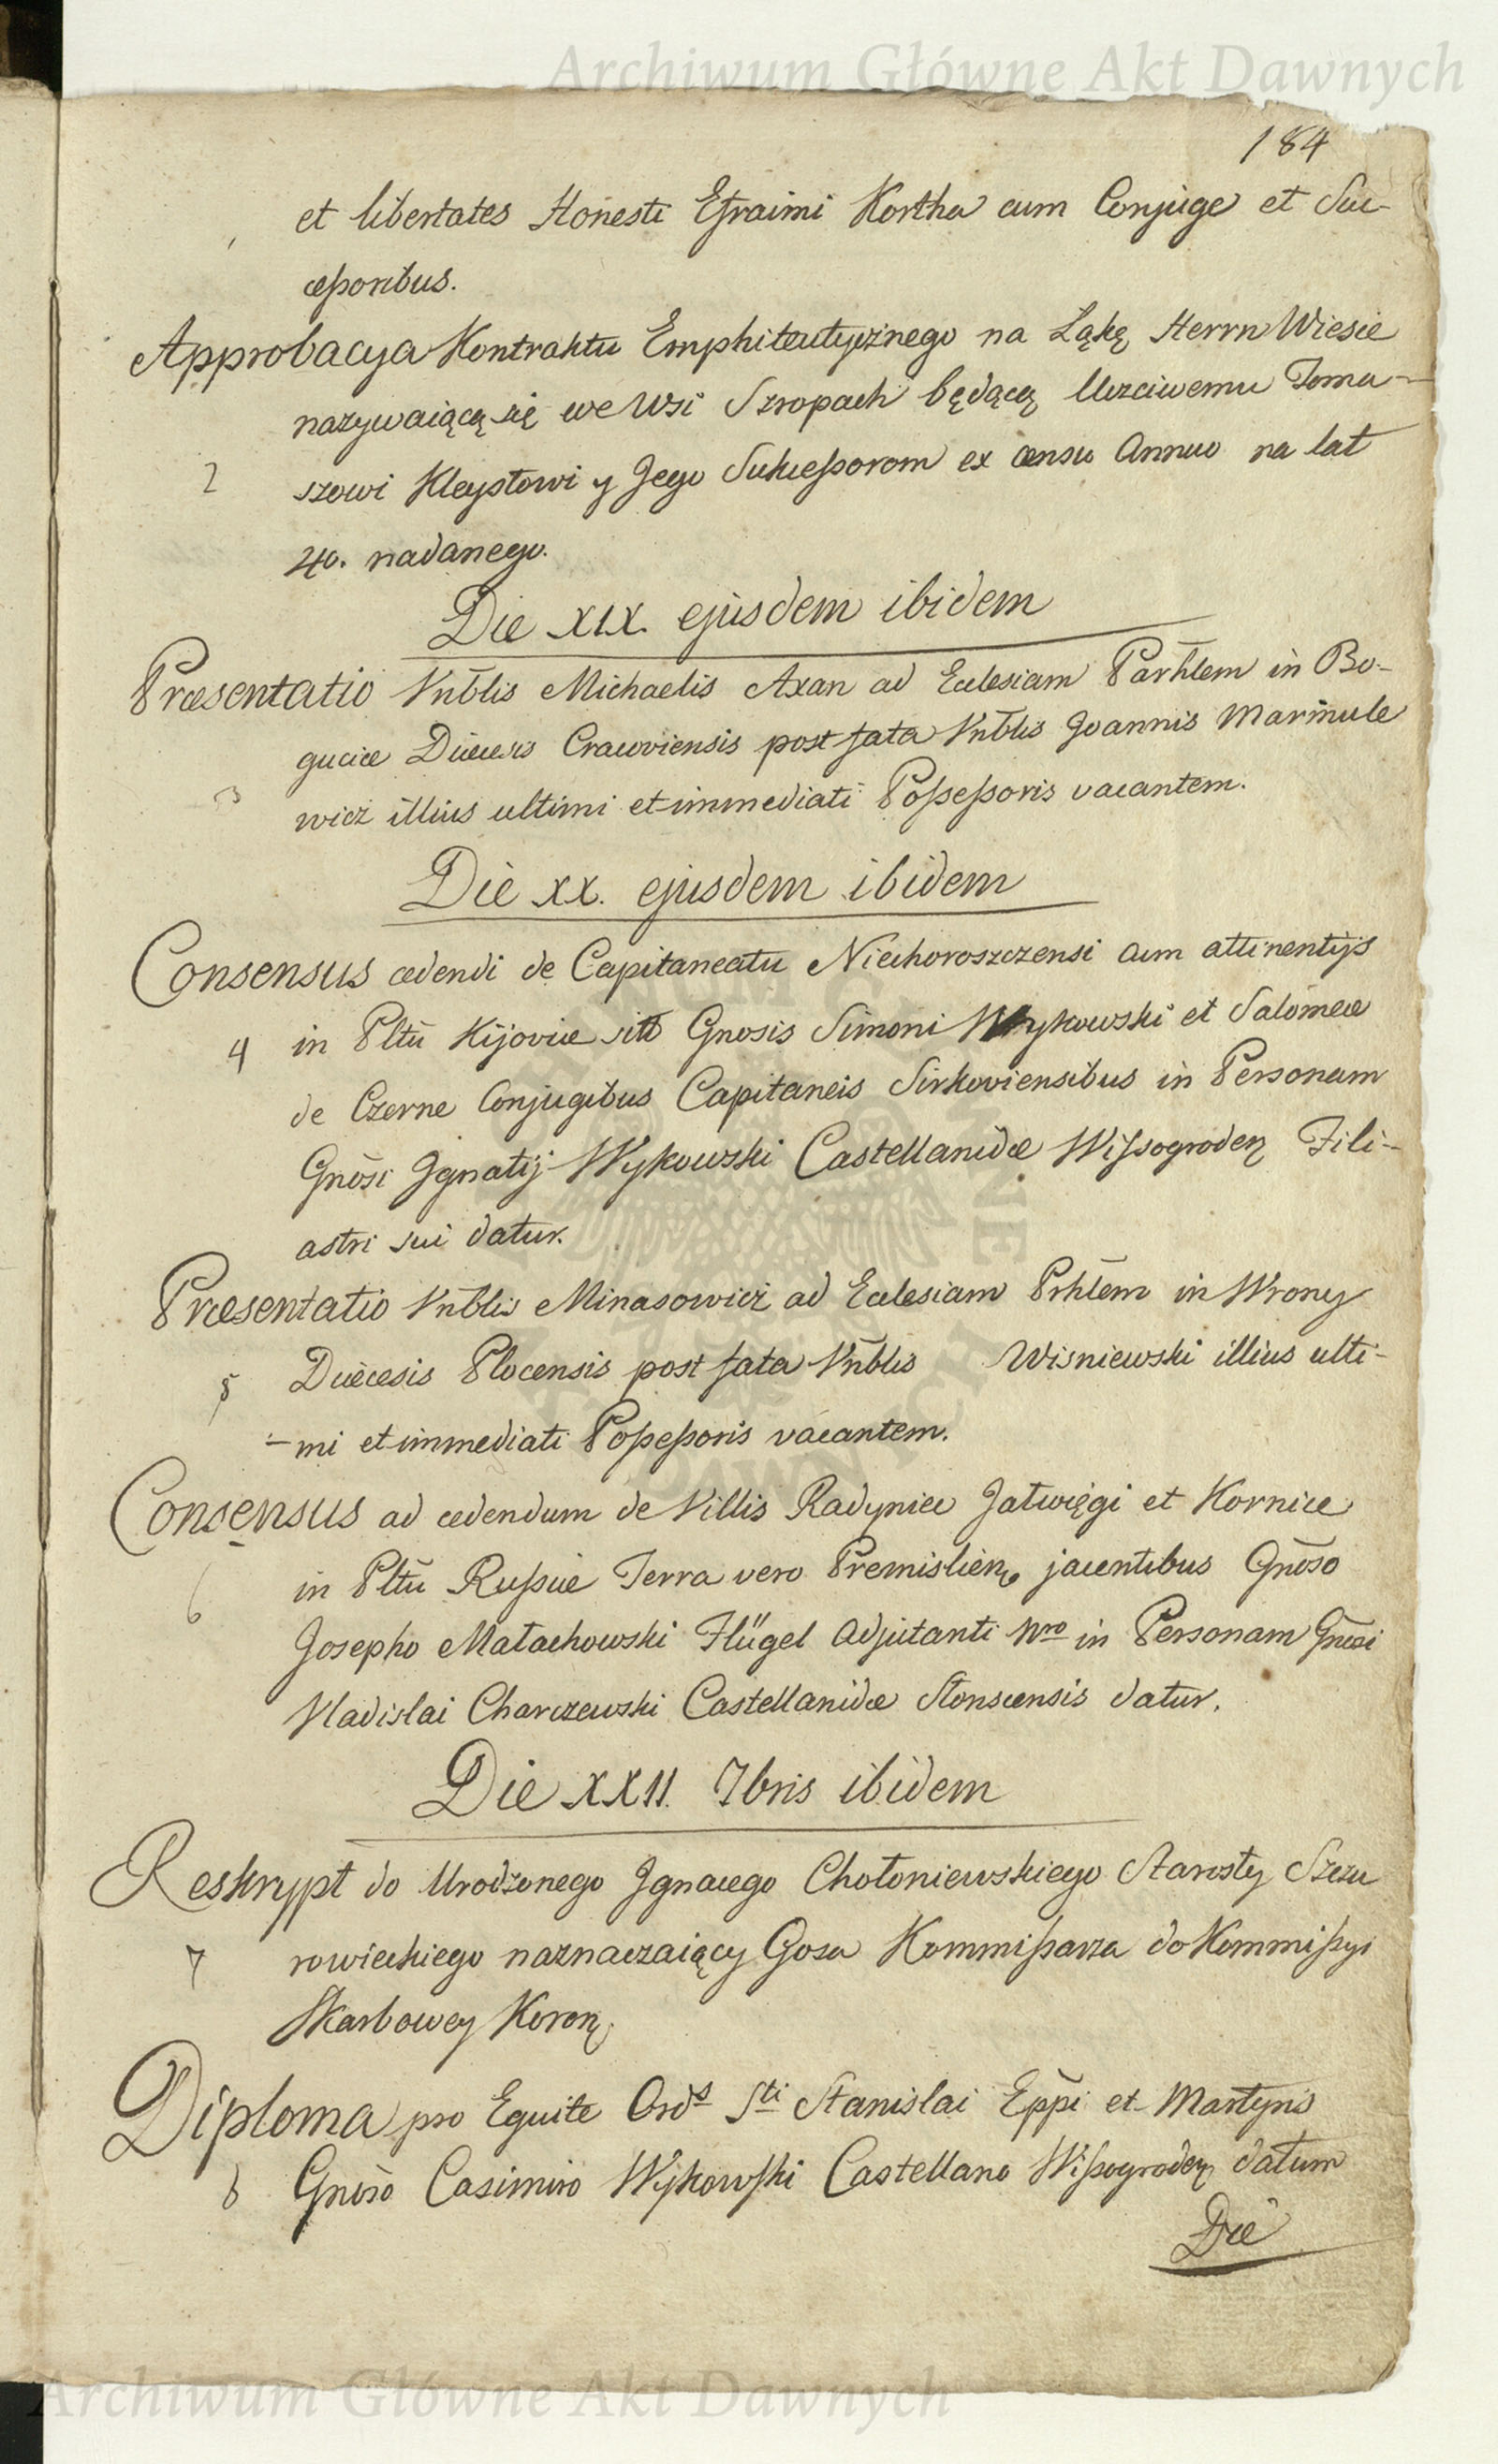 Archiwum Główne Akt Dawnych
184
et libertates Honesti Efraimi Kortha cum Conjuge et Suc-
ceßoribus.
Approbacya Kontraktu Emphiteutycznego na Łąkę Herrn Wiesie
nazywaiącą się we Wsi Szropach będącą Uczciwemu Toma-
2 szowi Kleystowi y Jego Sukceßorom ex censu Annuo na lat
40. nadanego.
Die XIX. ejusdem ibidem
Præsentatio Vnblis Michaelis Axan ad Ecclesiam Parhlem in Bo-
gucice Diœcesis Cracoviensis post fata Vnblis Joannis Marmule
3 wicz illius ultimi et immediati Poßeßoris vacantem.
Die XX. ejusdem ibidem
Consensus cedendi de Capitaneatu Niechoroszczensi cum attinentijs
4 in Pltu Kijoviæ sitt Gnosis Simoni Wykowski et Salomeæ
de Czerne Conjugibus Capitaneis Sirkoviensibus in Personam
Gnosi Jgnatij Wykowski Castellanidæ Wißogroden Fili-
astri sui datur.
Præsentatio Vnblis Minasowicz ad Ecclesiam Prhlem in Wrony
5 Diœcesis Plocensis post fata Vnblis Wisniewski illius ulti-
-mi et immediati Poßeßoris vacantem.
Consensus ad cedendum de Villis Radynice Jatwięgi et Kornice
6 in Pltu Rußiæ Terra vero Premislien jacentibus Gnoso
Josepho Małachowski Flügel Adjutanti Nro in Personam Gnosi
Vladislai Charczewski Castellanidæ Słonscensis datur.
Die XXII. 7bris ibidem
Reskrypt do Urodzonego Jgnacego Chołoniewskiego Starosty Szczu
7 rowieckiego naznaczaiący Goza Kommißarza do Kommißyi
Skarbowey Koron
Diploma pro Equite Ords Sti Stanislai Eppi et Martyris
8 Gnoso Casimiro Wykowski Castellano Wißogroden datum
Die
Archiwum Główne Akt Dawnych